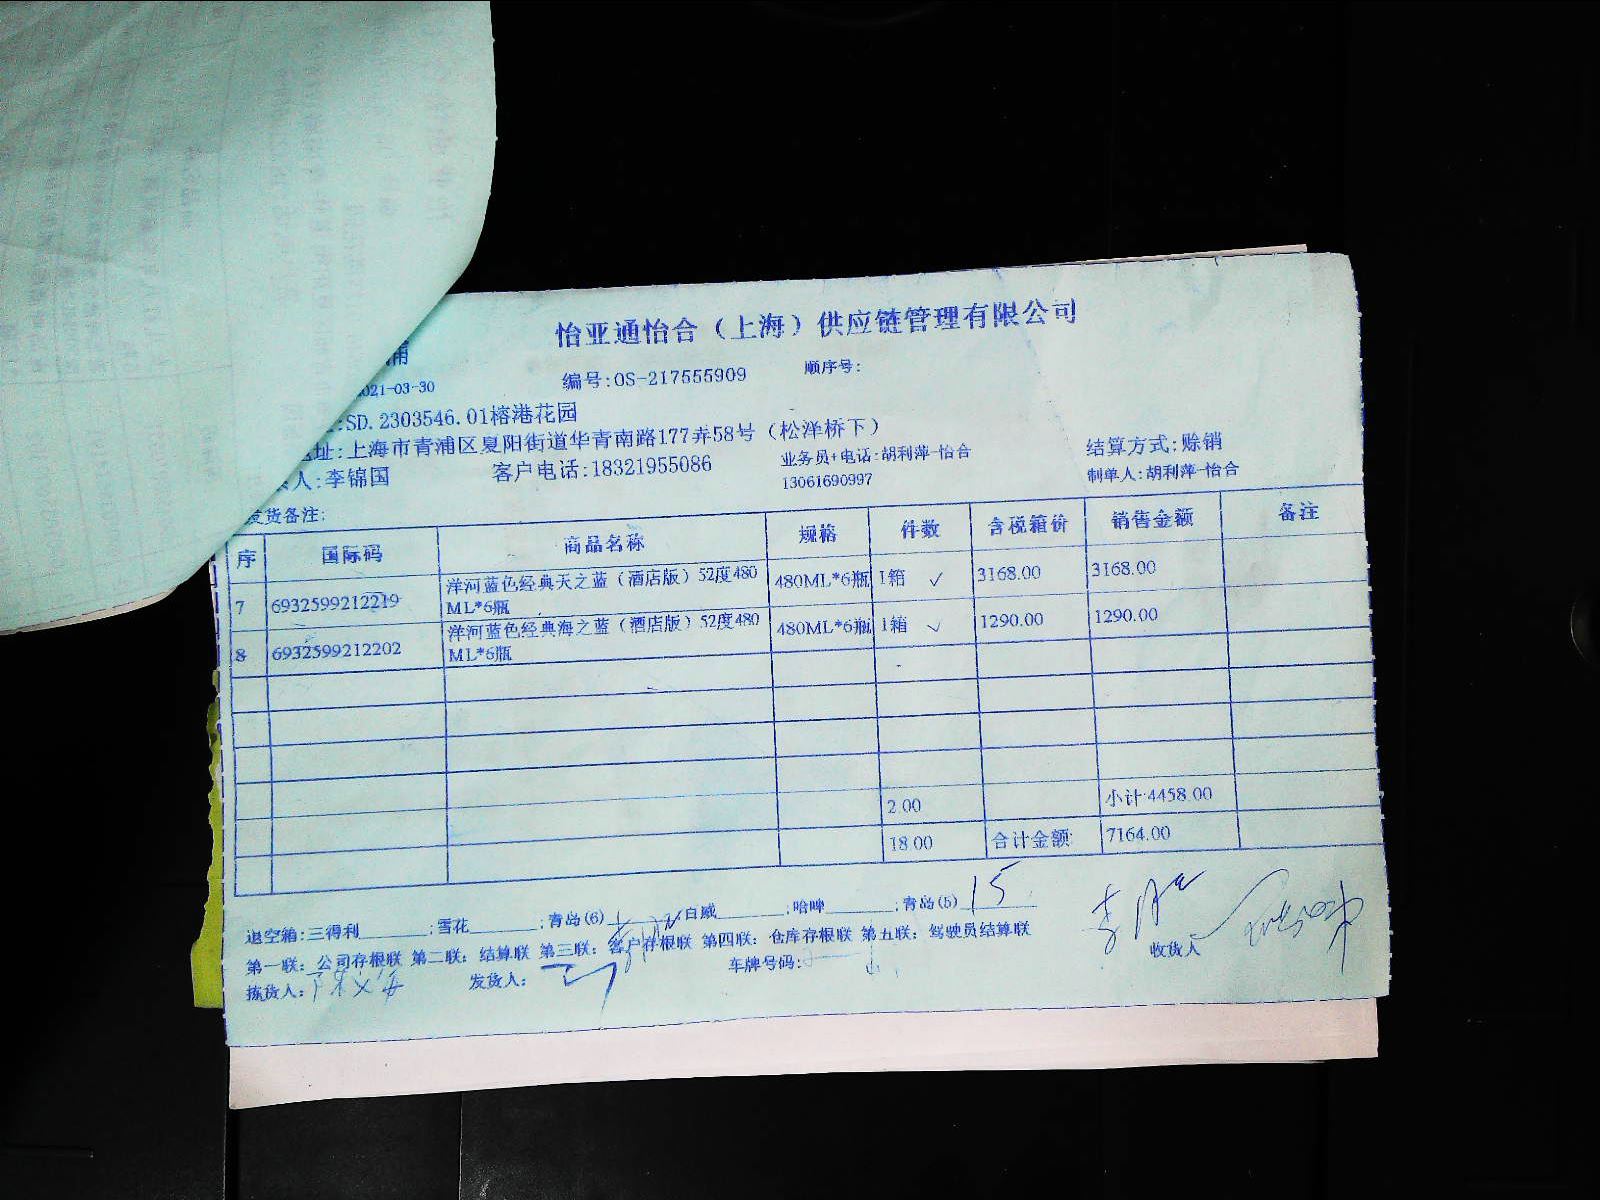 怡亚通怡合（上海）供应链管理有限公司
浦
021-03-30 编号:OS-217555909 顺序号:
:SD.2303546.01榕港花园
址:上海市青浦区夏阳街道华青南路177弄58号（松洋桥下）
人:李锦国 客户电话:18321955086 业务员+电话:胡利萍-怡合 结算方式:赊销
13061690997 制单人:胡利萍-怡合
发货备注:
序 国际码 商品名称 规格 件数 含税箱价 销售金额 备注
7 6932599212219 洋河蓝色经典天之蓝（酒店版）52度480 480ML*6瓶 1箱 ✓ 3168.00 3168.00
ML*6瓶
8 6932599212202 洋河蓝色经典海之蓝（酒店版）52度480 480ML*6瓶 1箱 ✓ 1290.00 1290.00
ML*6瓶
2.00 小计:4458.00
18.00 合计金额: 7164.00
退空箱:三得利 ;雪花 ;青岛(6) ;百威 ;哈啤 ;青岛(5) 15
第一联：公司存根联 第二联：结算联 第三联：客户存根联 第四联：仓库存根联 第五联：驾驶员结算联
拣货人: 发货人: 车牌号码: 收货人